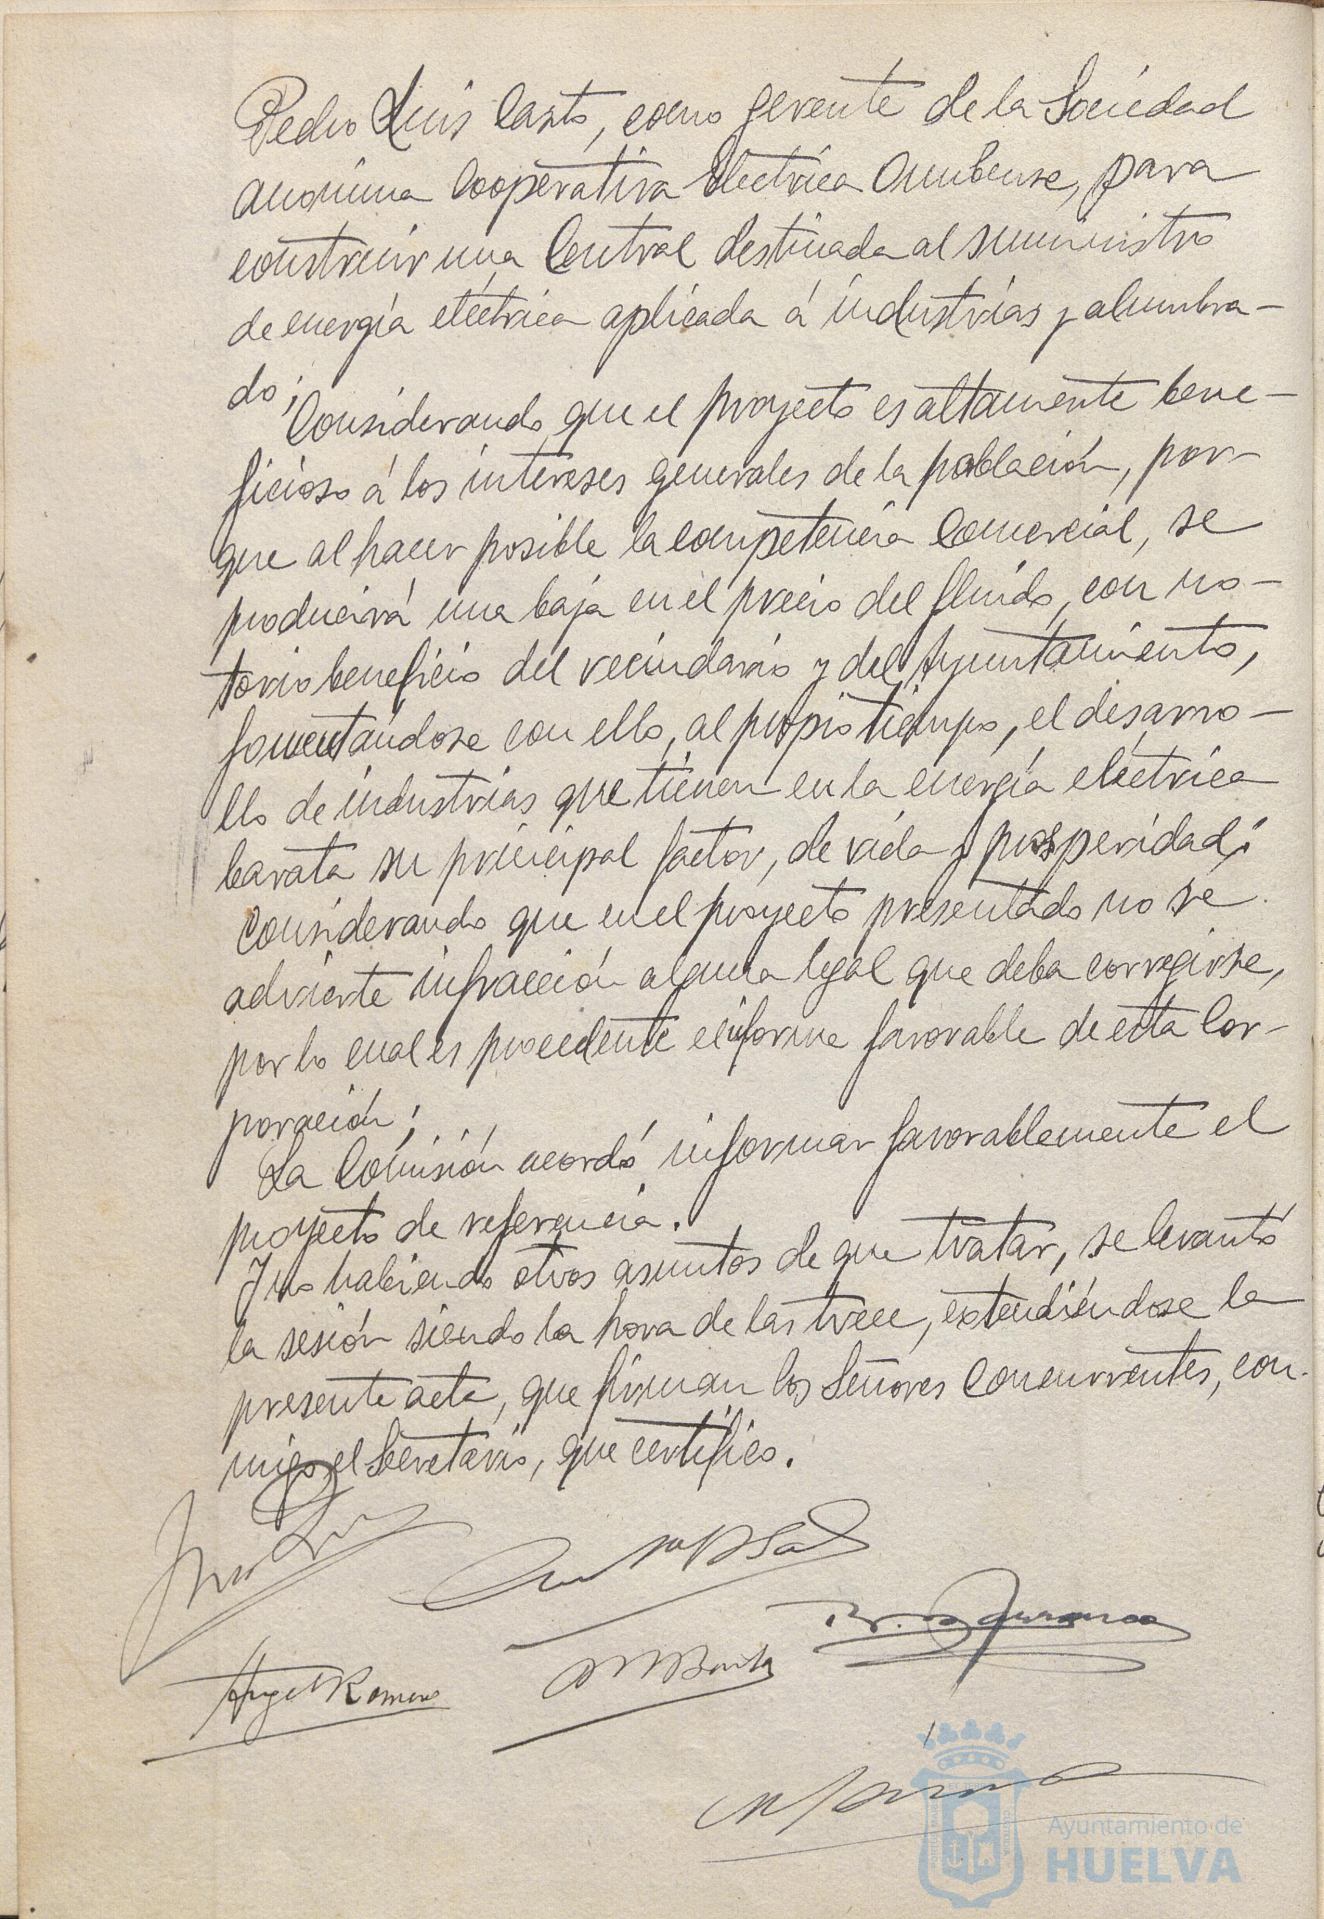 Pedro Luis Casto, como gerente de la Sociedad
anonima Cooperativa Electrica Onubense, para
construir una Central destinada al suministro
de energía eléctrica aplicada á industrias y alumbra-
do;
Considerando que el proyecto es altamente bene-
ficioso á los intereses generales de la población, por-
que al hacer posible la competencia Comercial, se
producirá una baja en el precio del fluido, con no-
torio beneficio del vecindario y del Ayuntamiento,
fomentándose con ello, al propio tiempo, el desarro-
llo de industrias que tienen en la energía eléctrica
barata su principal factor, de vida y prosperidad;
Considerando que en el proyecto presentado no se
advierte infracción alguna legal que deba corregirse,
por lo cual es procedente el informe favorable de esta Cor-
poración;
La Comisión acordó informar favorablemente el
proyecto de referencia.
Y no habiendo otros asuntos de que tratar, se levantó
la sesión siendo la hora de las trece, extendiéndose la
presente acta, que firman los Señores Concurrentes, con-
migo, el Secretario, que certifico.
Angel Romero
Ayuntamiento de
HUELVA